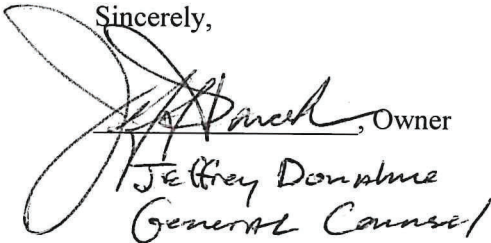 Sincerely,
, Owner
Jeffrey Donahue
General Counsel